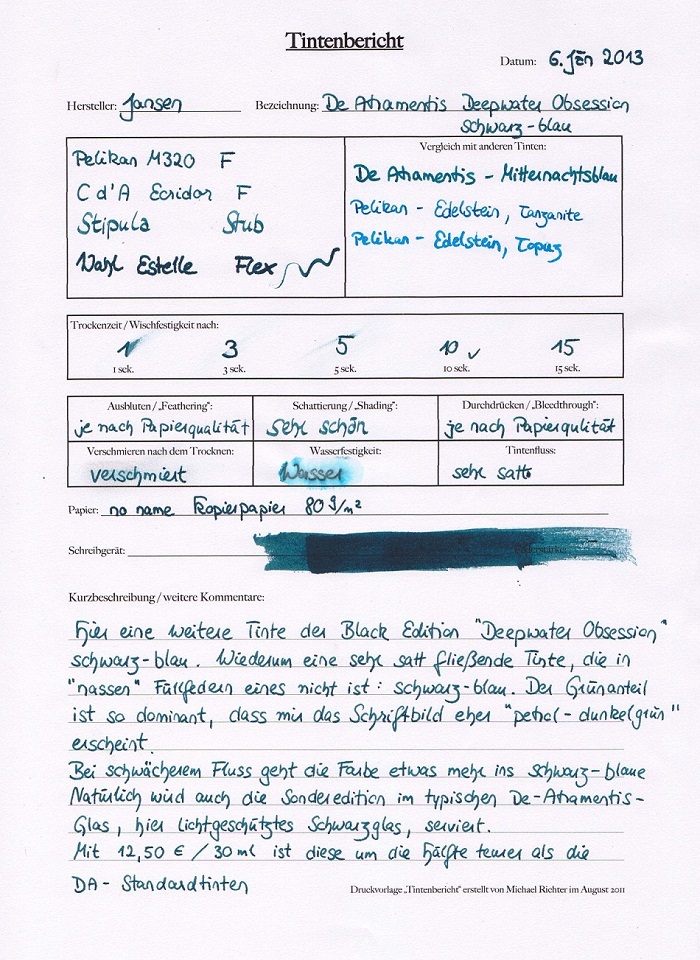 Tintenbericht
Datum: 6. Jän 2013
Hersteller: Jansen Bezeichnung: De Atramentis Deepwater Obsession
schwarz-blau
Pelikan M320 F
C d'A Ecridor F
Stipula Stub
Wahl Estelle Flex
Vergleich mit anderen Tinten:
De Atramentis - Mitternachtsblau
Pelikan - Edelstein, Tanzanite
Pelikan - Edelstein, Topaz
Trockenzeit / Wischfestigkeit nach:
1 3 5 10 ✓ 15
1 sek. 3 sek. 5 sek. 10 sek. 15 sek.
Ausbluten / „Feathering": Schattierung / „Shading": Durchdrücken / „Bleedthrough":
je nach Papierqualität sehr schön je nach Papierqulität
Verschmieren nach dem Trocknen: Wasserfestigkeit: Tintenfluss:
verschmiert Wasser sehr satt
Papier: no name Kopierpapier 80 g/m²
Schreibgerät:
Kurzbeschreibung / weitere Kommentare:
Hier eine weitere Tinte der Black Edition "Deepwater Obsession"
schwarz-blau. Wiederum eine sehr satt fließende Tinte, die in
"nassen" Füllfedern eines nicht ist: schwarz-blau. Der Grünanteil
ist so dominant, dass mir das Schriftbild eher "petrol - dunkelgrün"
erscheint.
Bei schwächerem Fluss geht die Farbe etwas mehr ins schwarz-blaue
Natürlich wird auch die Sonderedition im typischen De-Atramentis-
Glas, hier lichtgeschütztes Schwarzglas, serviert.
Mit 12,50 € / 30 ml ist diese um die Hälfte teurer als die
DA - Standardtinten
Druckvorlage „Tintenbericht" erstellt von Michael Richter im August 2011